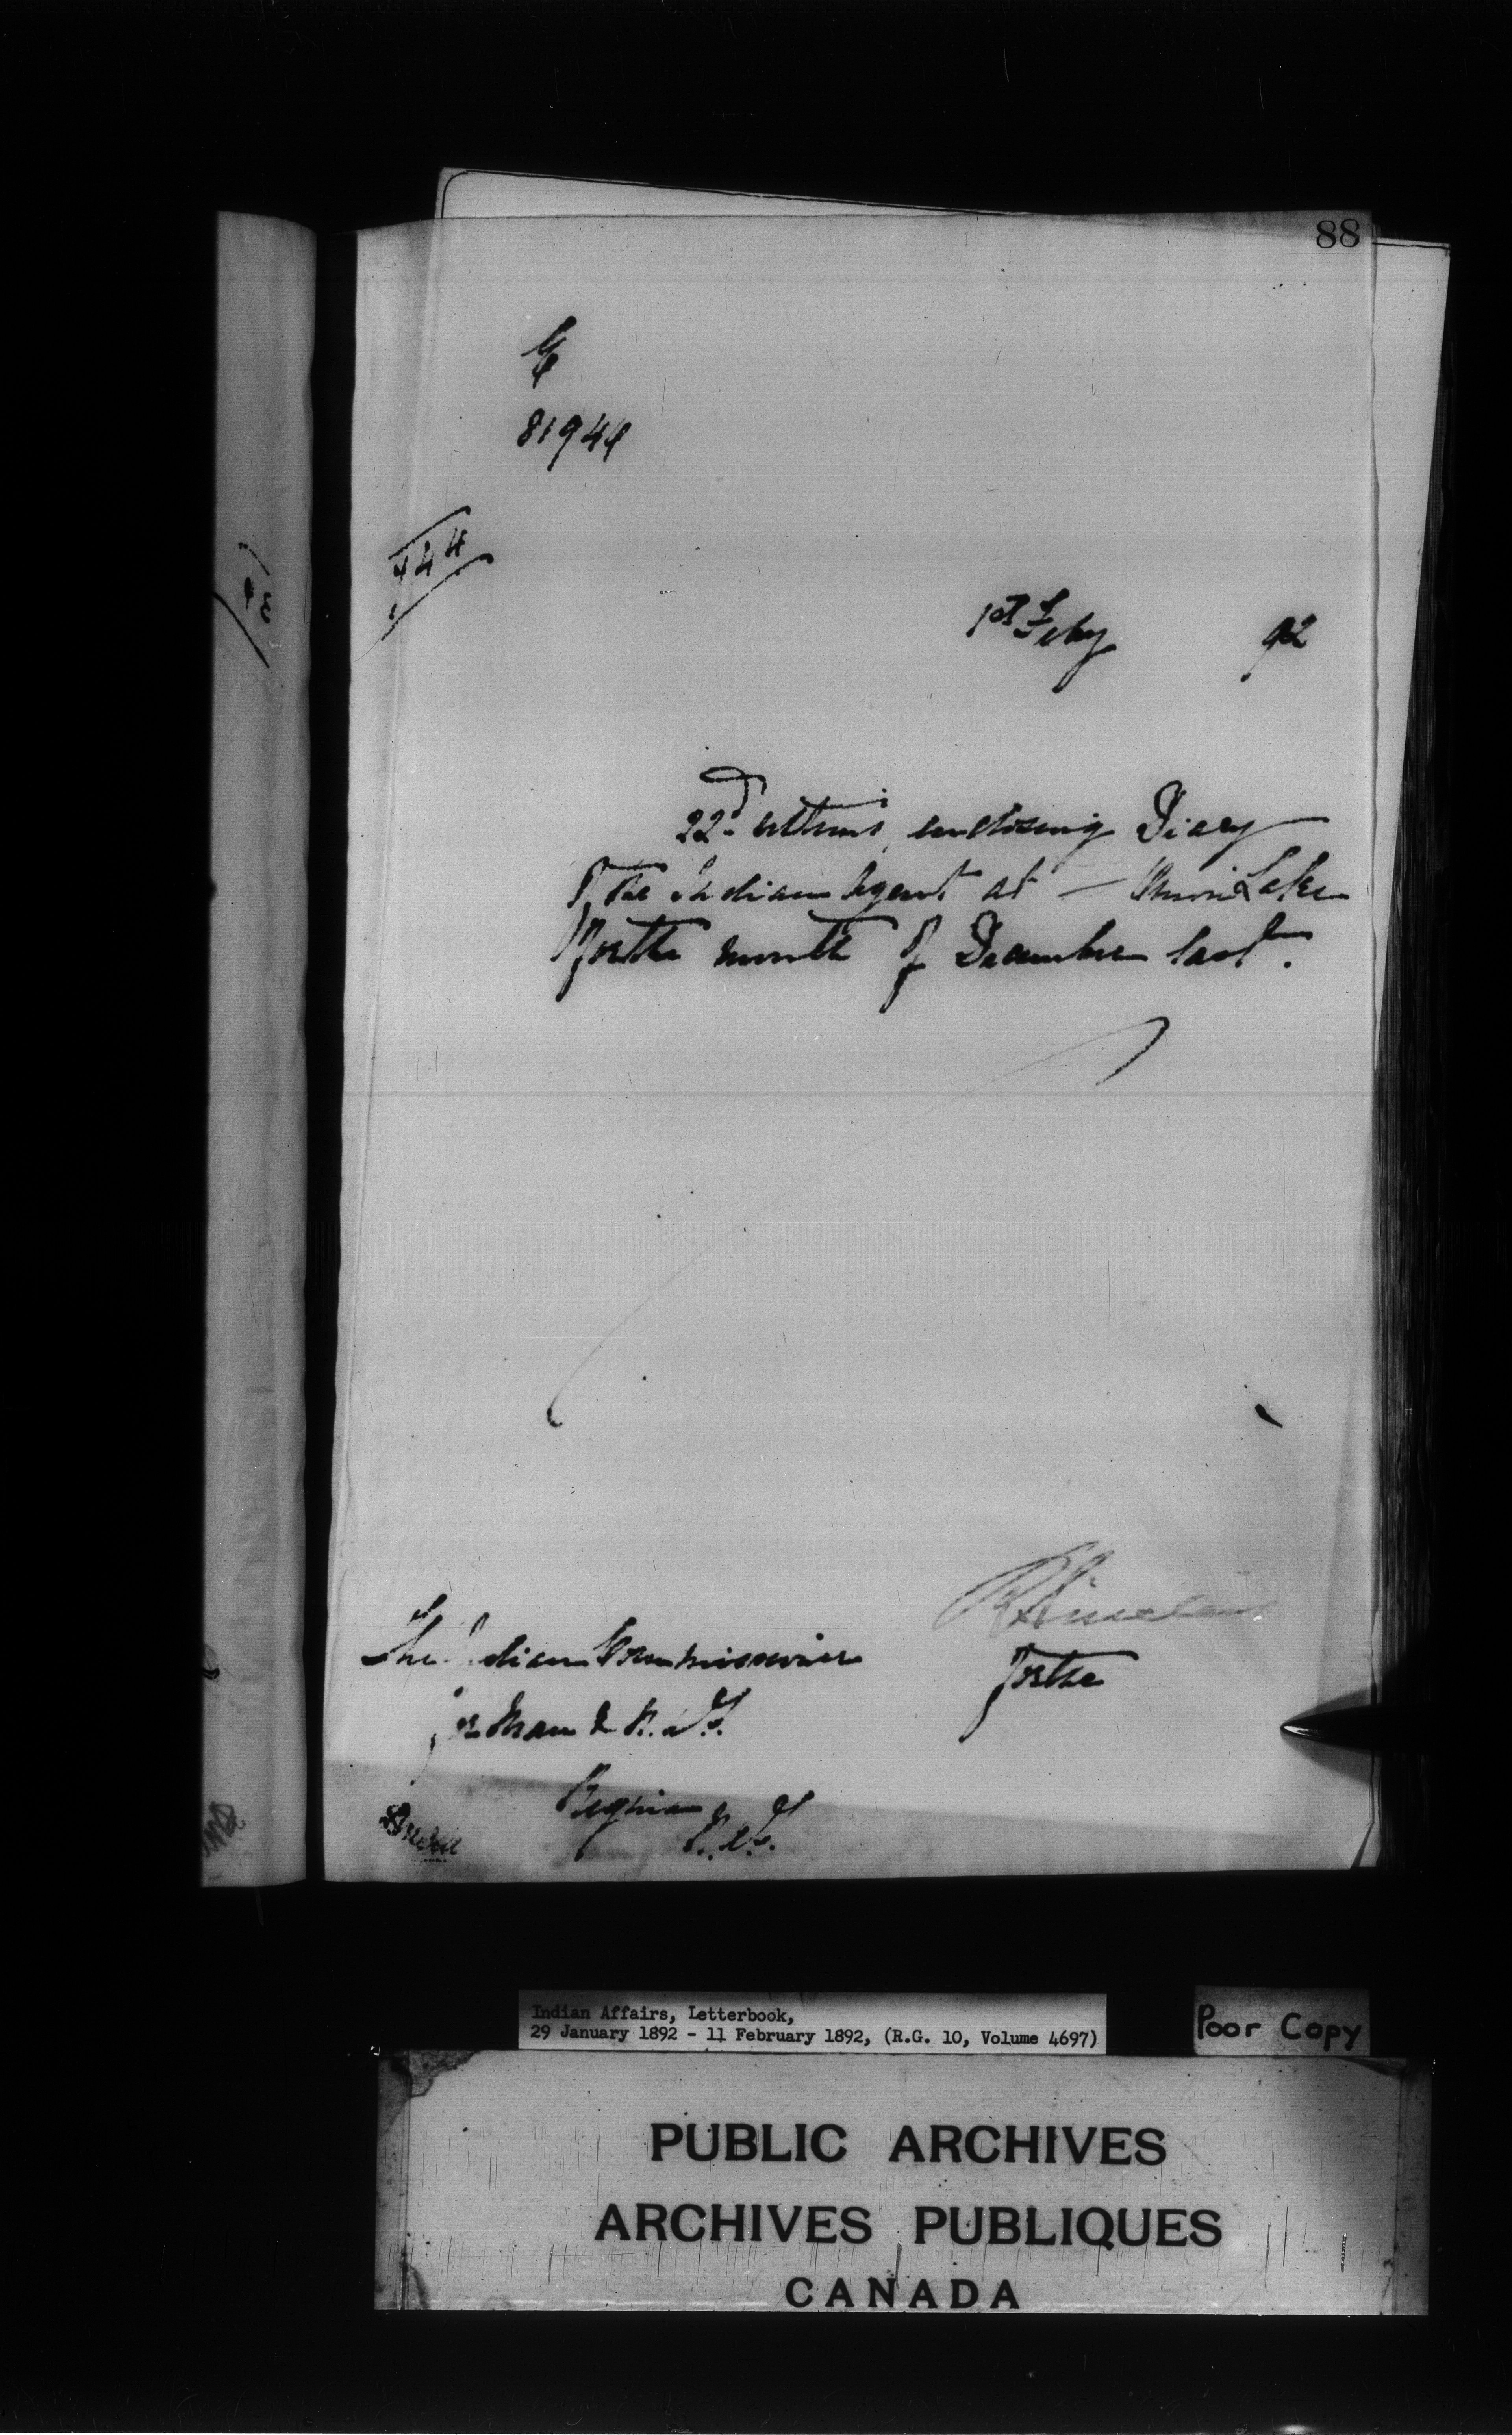 88
81944
444
1st Feby 92
22d ultimo, enclosing Diary
of the Indian Agent at Onion Lake
for the month of December last.
The Indian Commissioner
for the
for Man & N.W.T.
Regina
N.W.T.
Indian Affairs, Letterbook,
29 January 1892 - 11 February 1892, (R.G. 10, Volume 4697)
Poor Copy
PUBLIC ARCHIVES
ARCHIVES PUBLIQUES
CANADA